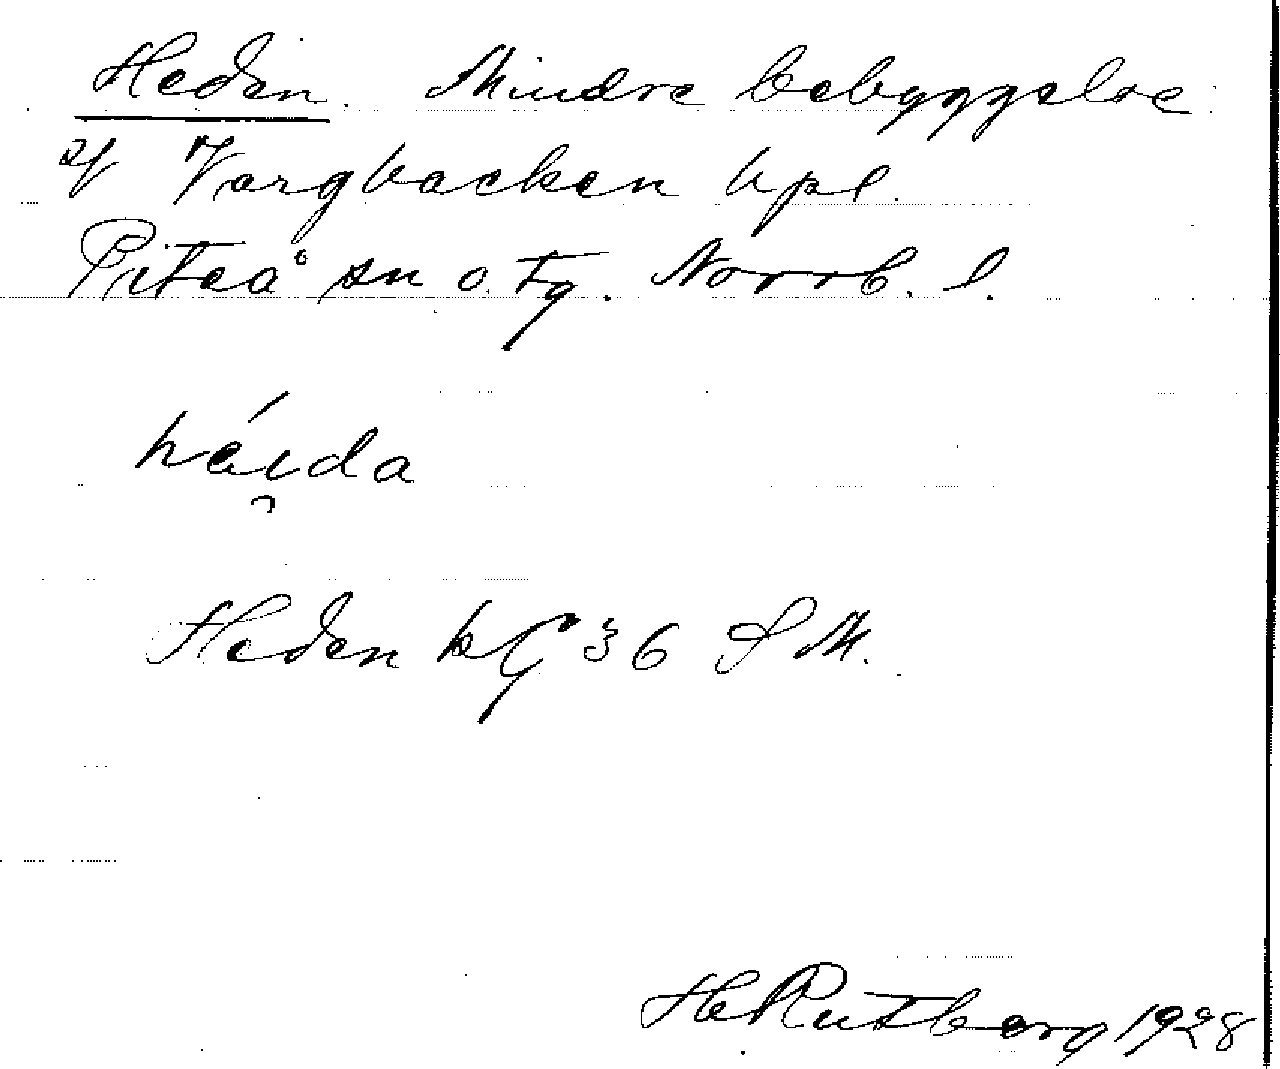 Heden. Mindre bebyggelse
y Vargbacken bpl.
Piteå sn o. tg. Norrb. l.
háida
Heden kG 36 S M.
H Rutberg 1928